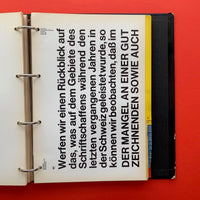 Werfen wir einen Rückblick auf
das, was auf dem Gebiete des
Schriftschaffens während den
letzten vergangenen Jahren in
der Schweiz geleistet wurde, so
können wir beobachten, daß im
DER MANGEL AN EINER GUT
ZEICHNENDEN SOWIE AUCH